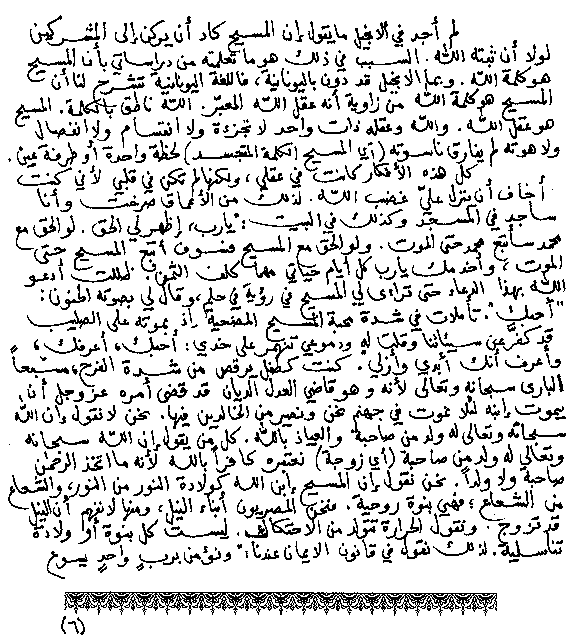 لم أجد في الانجيل ما يقول إن المسيح كاد أن يركن إلى المشركين
لولا أن ثبته الله. السبب في ذلك هو ما تعلمته من دراساتي بأن المسيح
هو كلمة الله. وبما الانجيل قد دُون باليونانية، فاللغة اليونانية تشرح لنا أن
المسيح هو كلمة الله من زاوية أنه عقل الله المعبّر. الله ناطق بالكلمة. المسيح
هو عقل الله. والله وعقله ذات واحد لا تجزءة ولا انقسام ولا انفصال
ولاهوته لم يفارق ناسوته (أي المسيح الكلمة المتجسد) لحظة واحدة أو طرفة عين.
كل هذه الأفكار كانت في عقلي، ولكنها لم تكن في قلبي لأني كنت
أخاف أن ينزل عليّ غضب الله. لذلك من الأعماق صرخت وأنا
ساجد في المسجد وكذلك في البيت: "يارب، إظهر لي الحق. لو الحق مع
محمد سأتبع محمد حتى الموت. ولو الحق مع المسيح فسوف أتبع المسيح حتى
الموت، وأخدمك يارب كل أيام حياتي مهما كلف الثمن". ظللت أدعو
الله بهذا الدعاء حتى تراءى لي المسيح في رؤية في حلم، وقال لي بصوته الحنون:
"أحبك". تأملت في شدة محبة المسيح المضحية إذ بموته على الصليب
قد كفّر عن سيئاتنا وقلت له ودموعي تنهمر على خدي: أحبك، أعرفك،
وأعرف أنك أبدي وأزلي. كنت كطفل يرقص من شدة الفرح، مسبّحاً
البارئ سبحانه وتعالى لأنه وهو قاضي العدل الديان قد قضى أمره عز وجل أن
يموت إبنه لئلا نموت في جهنم نحن ونصير من الخالدين فيها. نحن لا نقول إن الله
سبحانه وتعالى له ولد من صاحبة والعياذ بالله. كل من يقول إن الله سبحانه
وتعالى له ولد من صاحبة (أي زوجة) نعتبره كافراً بالله لأنه ما اتخذ الرحمن
صاحبة ولا ولداً. نحن نقول إن المسيح إبن الله كولادة النور من النور، والشعاع
من الشعاع، فهي بنوة روحية. فنحن المصريون أبناء النيل، ومنها لا نفهم أن النيل
قد تزوج. ونقول الحرارة تتولد من الاحتكاك. ليست كل بنوة أو ولادة
تناسلية. لذلك نقول في قانون الايمان عندنا: "ونؤمن برب واحد يسوع
(٦)